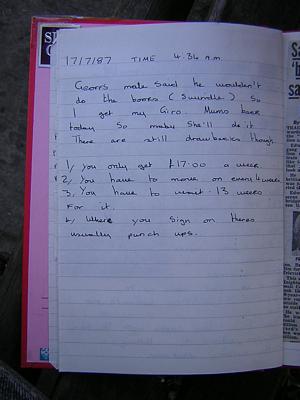 17/7/87 TIME 4.34 a.m.
Geoffs mate said he wouldn't
do the books (Swindle) So
I get my Giro. Mums back
today So maby She'll do it
There are still drawbacks though
1, You only get £17.00 a week
2, You have to move on every 4 weeks
3, You have to wait 13 weeks
For it
4, Where you sign on theres
usually punch ups.